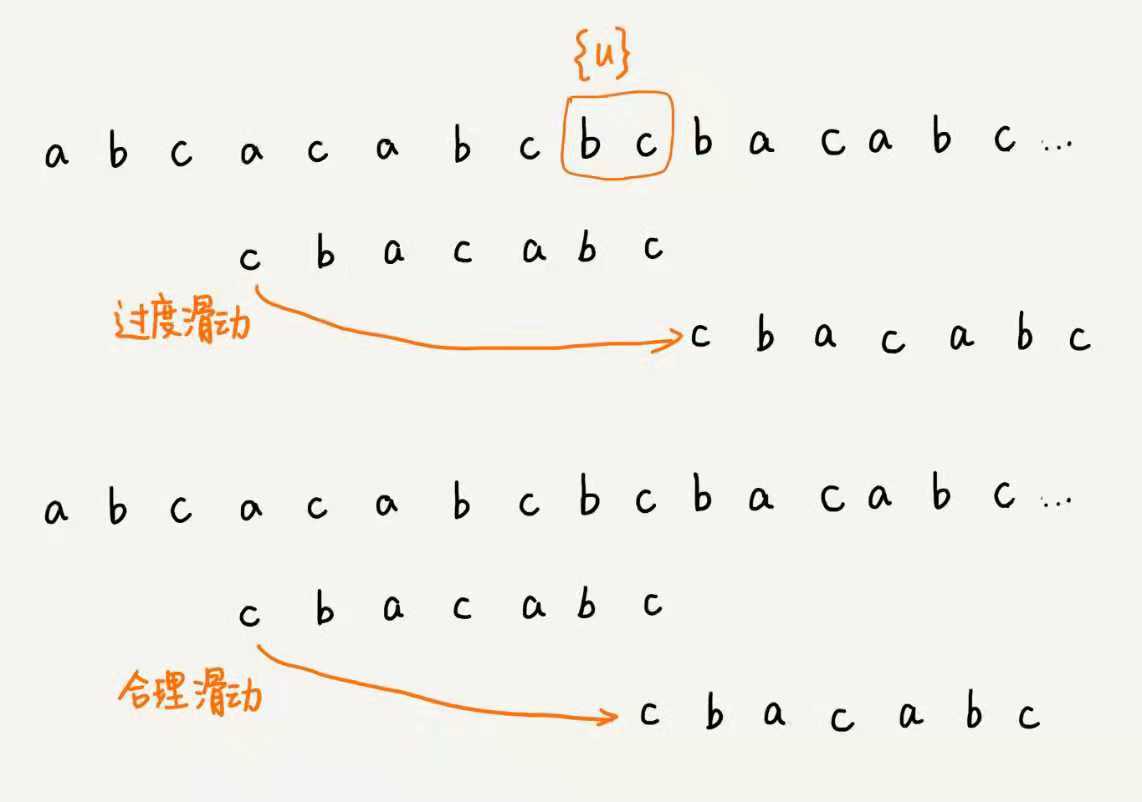 {u}
a b c a c a b c b c b a c a b c ...
c b a c a b c
过度滑动
c b a c a b c
a b c a c a b c b c b a c a b c ...
c b a c a b c
合理滑动
c b a c a b c